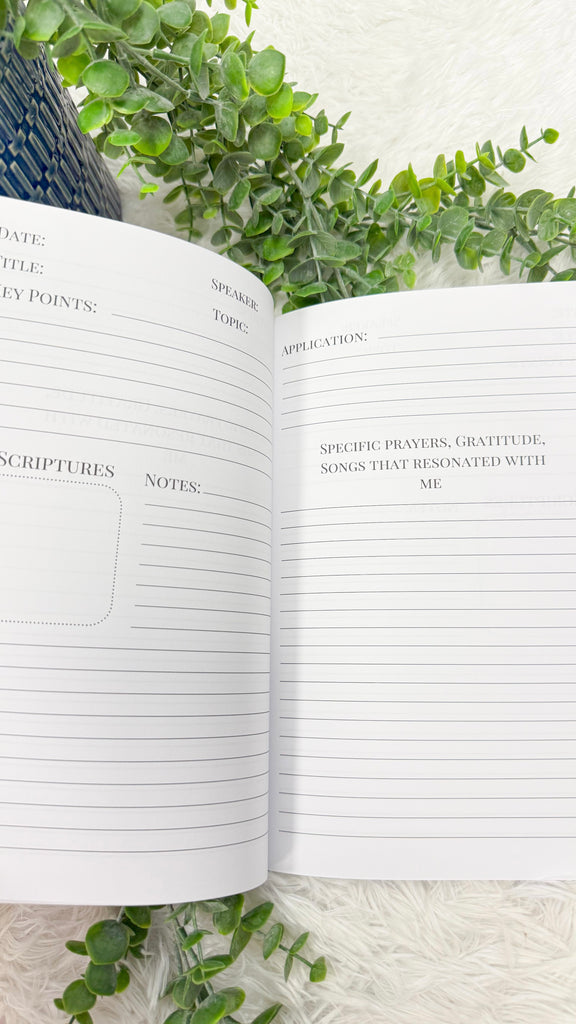 Date:
Title:
Speaker:
Key Points:
Topic:
Scriptures
Notes:
Application:
Specific prayers, Gratitude,
Songs that resonated with
me